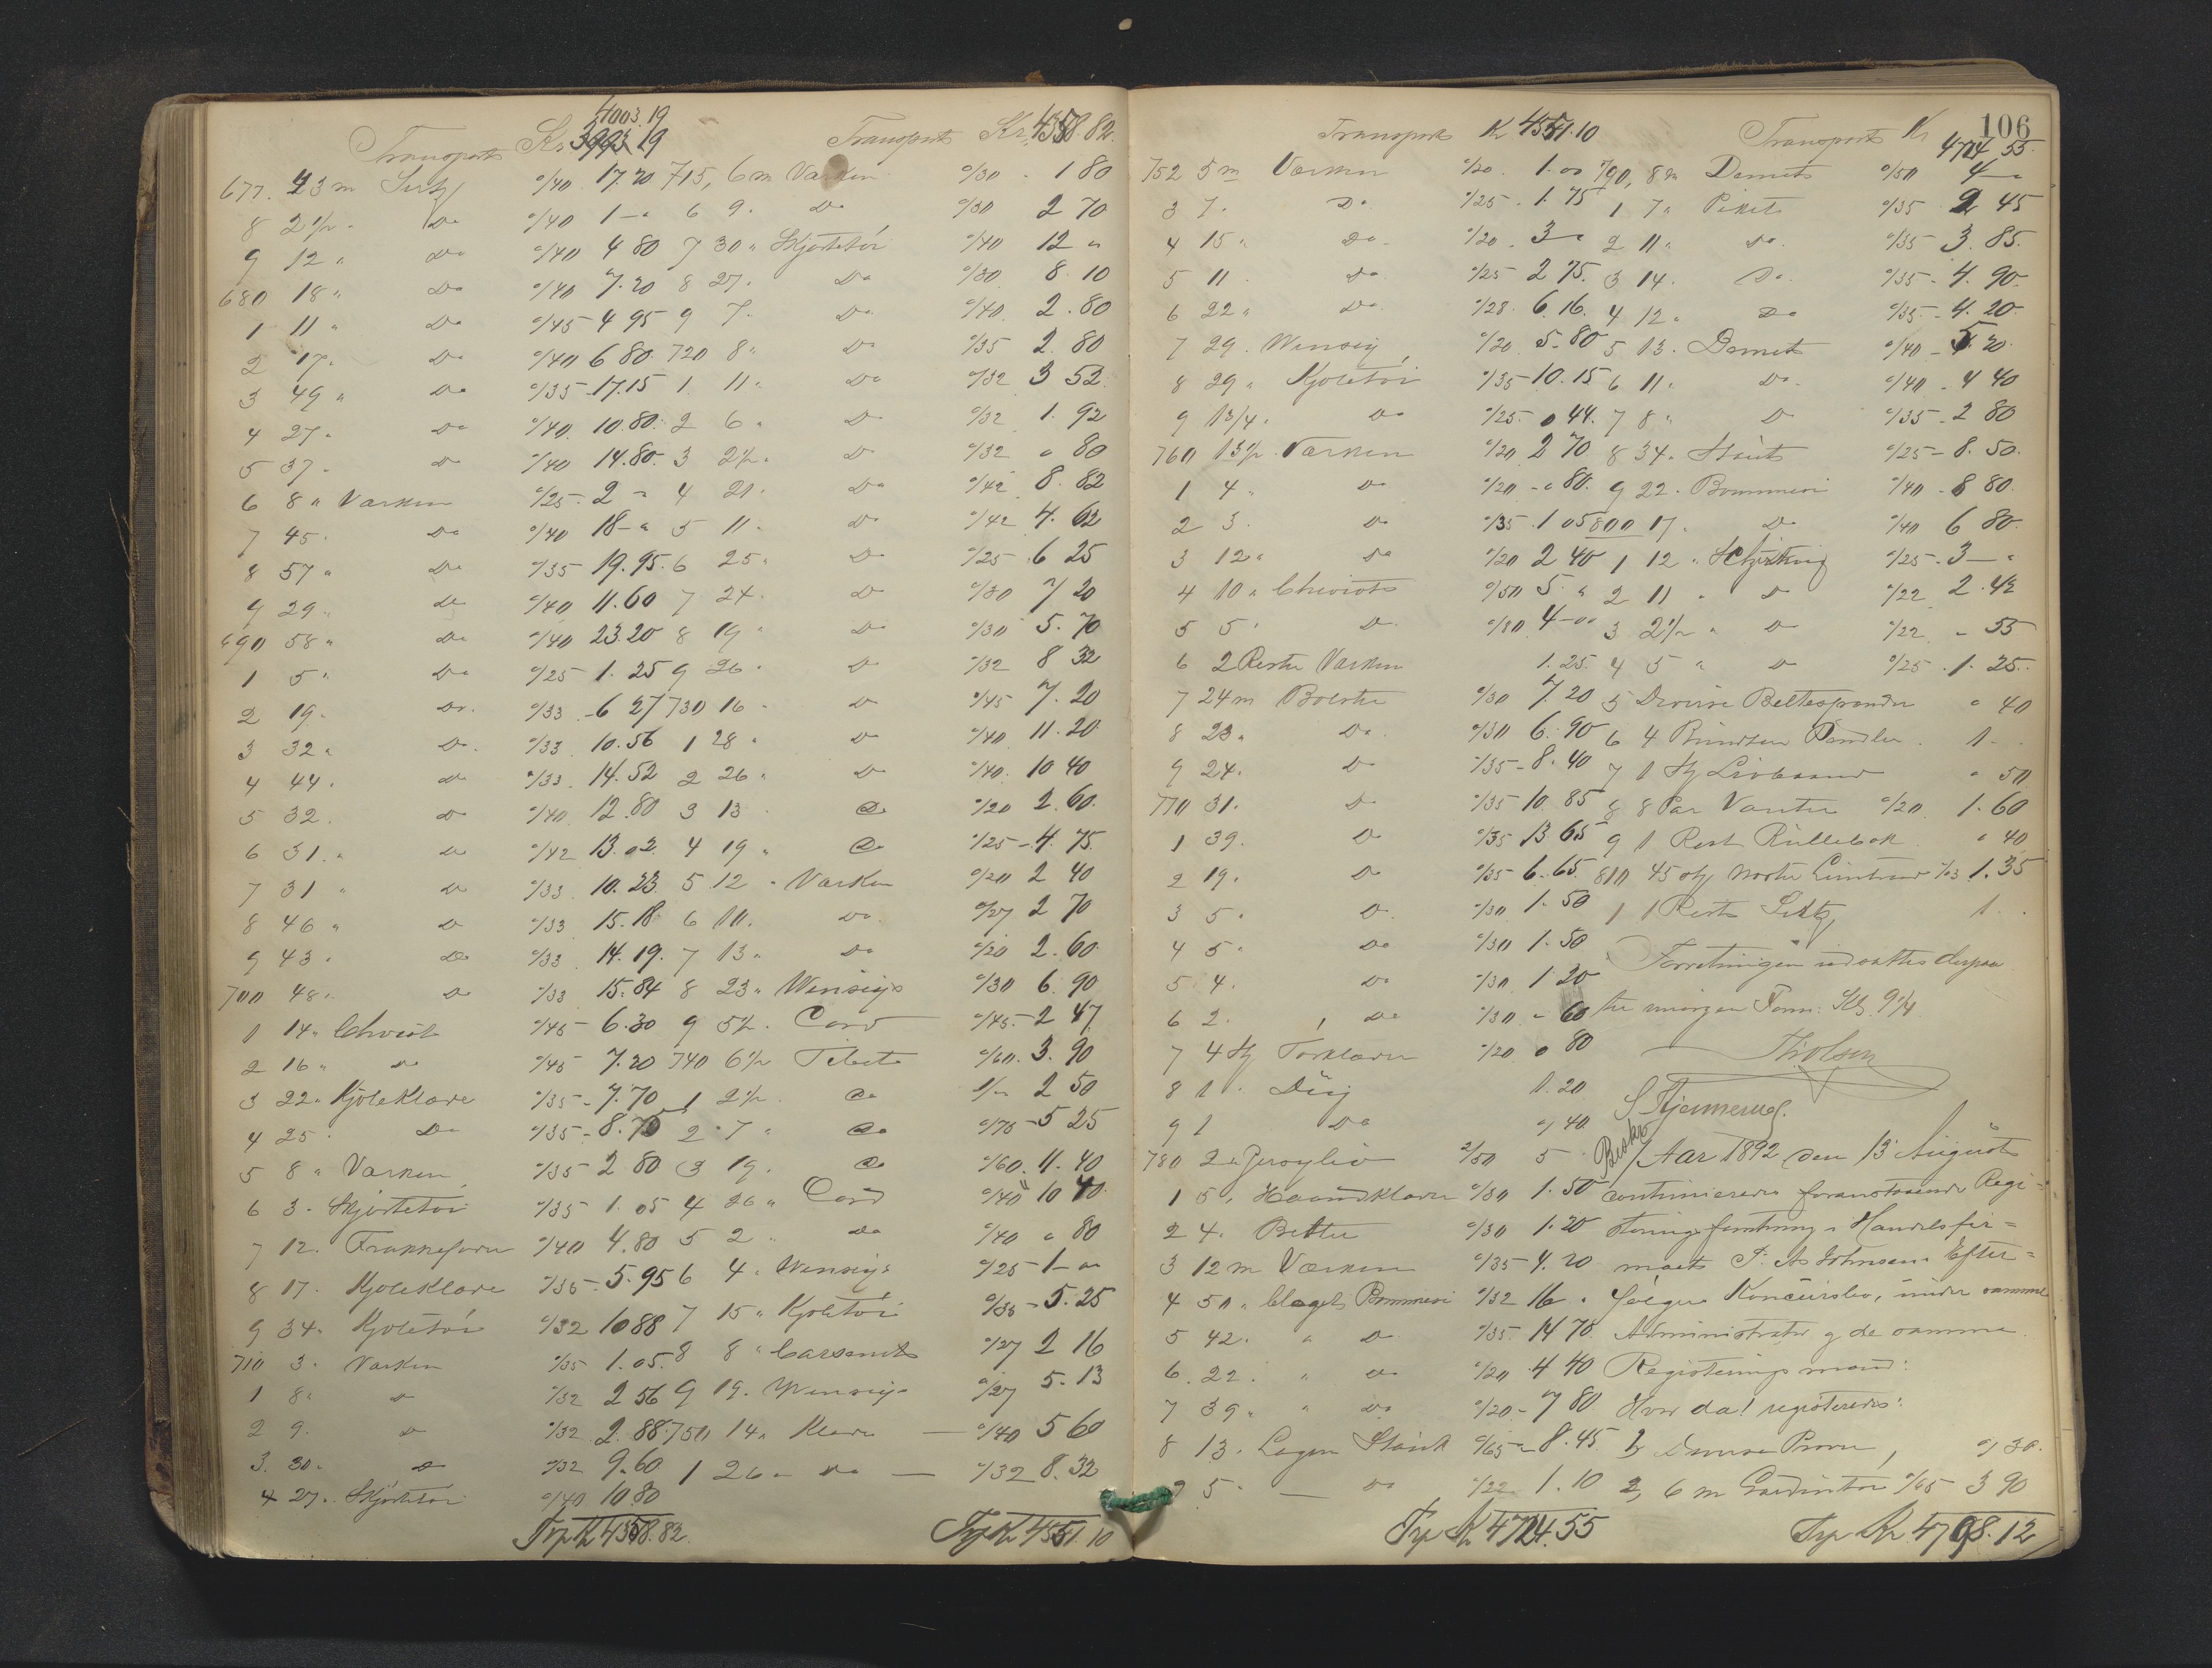 4003.19
Transport Kr 3993.19
677. 43 m Sirtz °/40 17.20
8 2½ " Do °/40 1 - "
9 12 " Do °/40 4 80
680 18 " Do °/40 7.20
1 11 " Do °/45 4 95
2 17 " Do °/40 6 80
3 49 " Do °/35 17.15
4 27 " Do °/40 10.80
5 37 " Do °/40 14.80
6 8 " Værken °/25 2 - "
7 45 " Do °/40 18 - "
8 57 " Do °/35 19.95
9 29 " Do °/40 11.60
690 58 " Do °/40 23.20
1 5 " Do °/25 1.25
2 19 " Do °/33 6 27
3 32 " Do °/33 10.56
4 44 " Do °/33 14.52
5 32 " Do °/40 12.80
6 31 " Do °/42 13.02
7 31 " Do °/33 10.23
8 46 " Do °/33 15.18
9 43 " Do °/33 14.19
700 48 " Do °/33 15.84
1 14 " Cheviot °/45 6.30
2 16 " Do °/45 7.20
3 22 " Kjoleklæde °/35 7.70
4 25 " Do °/35 8.75
5 8 " Værken °/35 2 80
6 3 " Skjortetøi °/35 1.05
7 12 " Frakkefoder °/40 4.80
8 17 " Kjoleklæde °/35 5.95
9 34 " Kjoletøi °/32 10 88
710 3 " Værken °/35 1.05
1 8 " Do °/32 2 56
2 9 " Do °/32 2.88
3 30 " Do °/32 9.60
4 27 " Skjortetøi °/40 10.80
Trp Kr 4358.82
Transport Kr 4358.82
715, 6 m Værken °/30 1 80
6 9 " Do °/30 2 70
7 30 " Skjortetøi °/40 12 "
8 27 " Do °/30 8.10
9 7 " Do °/40 2.80
720 8 " Do °/35 2 80
1 11 " Do °/32 3 52
2 6 " Do °/32 1.92
3 2½ " Do °/32 " 80
4 21 " Do °/42 8.82
5 11 " Do °/42 4.62
6 25 " Do °/25 6 25
7 24 " Do °/30 7 20
8 19 " Do °/30 5.70
9 26 " Do °/32 8 32
730 16 " Do °/45 7.20
1 28 " Do °/40 11.20
2 26 " Do °/40 10 40
3 13 " Do °/20 2.60
4 19 " Do °/25 4.75
5 12 " Værken °/20 2 40
6 10 " Do °/27 2 70
7 13 " Do °/20 2.60
8 23 " Wensigs °/30 6.90
9 5½ " Cord °/45 2 47
740 6½ Tibet °/60 3.90
1 2½ " Do 1/- 2 50
2 7 " Do °/75 5 25
3 19 " Do °/60 11.40
4 26 " Cord °/40 10 40
5 2 " Do °/40 " 80
6 4 " Wensigs °/25 1 - "
7 15 " Kjoletøi °/35 5.25
8 8 " Carsenets °/27 2 16
9 19 " Wensigs °/27 5.13
750 14 " Klæde °/40 5 60
1 26 " Do °/32 8.32
Trp Kr 4551.10
106
Transport Kr 4551.10
752 5 m Værken °/20 1.00
3 7 " Do °/25 1.75
4 15 " Do °/20 3 - "
5 11 Do °/25 2 75
6 22 " Do °/28 6.16
7 29 " Wensig °/20 5.80
8 29 " Kjoletøi °/35 10.15
9 1¾ " Do °/25 " 44
760 13½ " Værken °/20 2 70
1 4 " Do °/20 " 80
2 3 " Do °/35 1 05
3 12 " Do °/20 2 40
4 10 " Cheviots °/50 5 "
5 5 " Do °/80 4 - "
6 2 Rester Værken 1.25
7 24 m Bolster °/30 7.20
8 23 " Do °/30 6.90
9 24 " Do °/35 8.40
770 31 " Do °/35 10 85
1 39 " Do °/35 13 65
2 19 " Do °/35 6.65
3 5 " Do °/30 1.50
4 5 " Do °/30 1.50
5 4 " Do °/30 1.20
6 2 " Do °/30 " 60
7 4 St Forklæder °/20 " 80
8 1 " Dug 1.20
9 1 Do " 40
780 2 " Jerseyliv 2/50 5
1 5 " Haandklæder °/30 1.50
2 4 " Belter °/30 1.20
3 12 m Værken °/35 4.20
4 50 " Bleget Bommesi °/32 16 "
5 42 " " Do °/35 14 70
6 22 " " Do °/20 4 40
7 39 " " Do °/20 7 80
8 13 " Lagen Stout °/65 8.45
9 5 " — Do °/22 1.10
Trp Kr 4724.55
Transport Kr 4724 55
790, 8 m Demets °/50 4 - "
1 7 " Pikets °/35 2 45
2 11 " Do °/35 3.85
3 14 " Do °/35 4.90
4 12 " Do °/35 4.20
5 13 " Demets °/40 5.20
6 11 " Do °/40 4 40
7 8 " Do °/35 2 80
8 34 " Stouts °/25 8.50
9 22 " Bommesi °/40 8 80
800 17 " Do °/40 6 80
1 12 " Skjirting °/25 3 - "
2 11 " Do °/22 2.42
3 2½ " Do °/22 " 55
4 5 " Do °/25 1.25
5 Diverse Beltespænder " 40
6 4 Bundter Bændler 1 -
7 1 St Livbaand " 50
8 8 Par Vanter °/20 1.60
9 1 Rest Rullebok " 40
810 45 St Norske Lintraad °/03 1.35
1 1 Rest Sirtz 1 .
Forretningen udsattes derpaa
til imorgen Form. Kl. 9½
Th Olsen
S Hjemmerud
Beskr
Aar 1892 den 13 August
continueredes foranstaaende Regi-
streringsforretning i Handelsfir=
maets P. A. Johnsens Efter=
følgers Konkursbo, under samme
Administrator og de samme
Registreringsmænd:
Hvor da! registreredes:
1, Diverse Prøver, " 30
2, 6 m Gardintøi °/65 3 90
Trp Kr. 4798.12